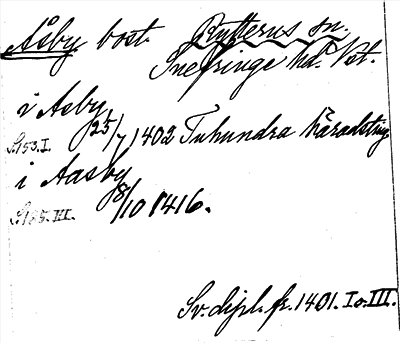 Åsby bost. Rytterns sn.
Snefringe hd. Vst.
i Aeby
S. 153. I. 25/7 1402 Tuhundra häradsting
i Aasby
S. 155. III. 8/10 1416.
Sv. dipl. fr. 1401. I o. III.